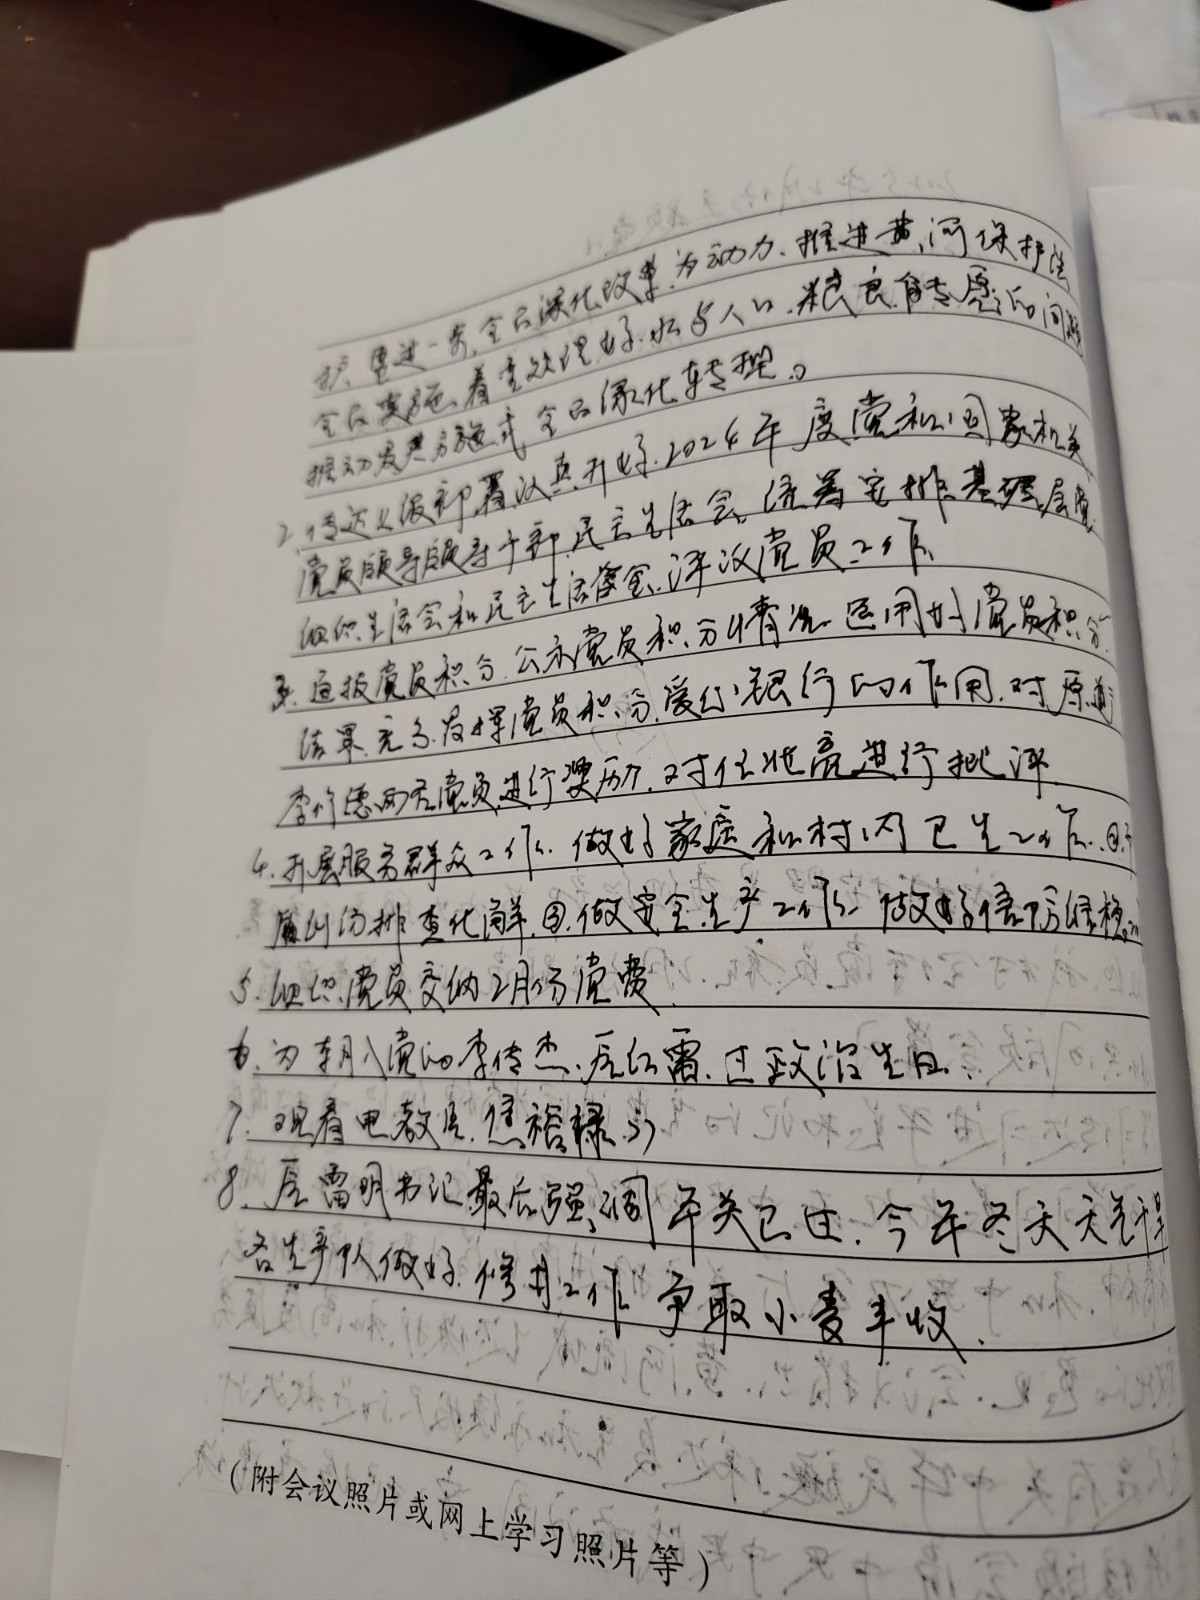 护,要进一步全面深化改革为动力,推进黄河保护法
全面实施,着重处理好水与人口、粮食、能源的问题
推动发展方式全面绿化转型。
2.传达上级部署认真开好2024年度党和国家机关
党员领导干部民主生活会,统筹安排基层党
组织生活会和民主生活会,评议党员工作。
3.通报党员积分,公示党员积分情况,运用好党员积分
结果,充分发挥党员积分爱行银行的作用,对
李 德两名党员进行奖励,对任 亮进行批评
4.开展服务群众工作,做好家庭和村内卫生工作,
纠纷排查化解,③做安全生产工作,做好信访维稳
5.组织党员交纳2月份党费
6.为本月入党的李传杰、 红雷,过政治生日,
7.观看电教片《焦裕禄》
8. 雷明书记最后强调年关已过,今年冬天天气干旱
各生产队做好 工作争取小麦丰收.
(附会议照片或网上学习照片等)